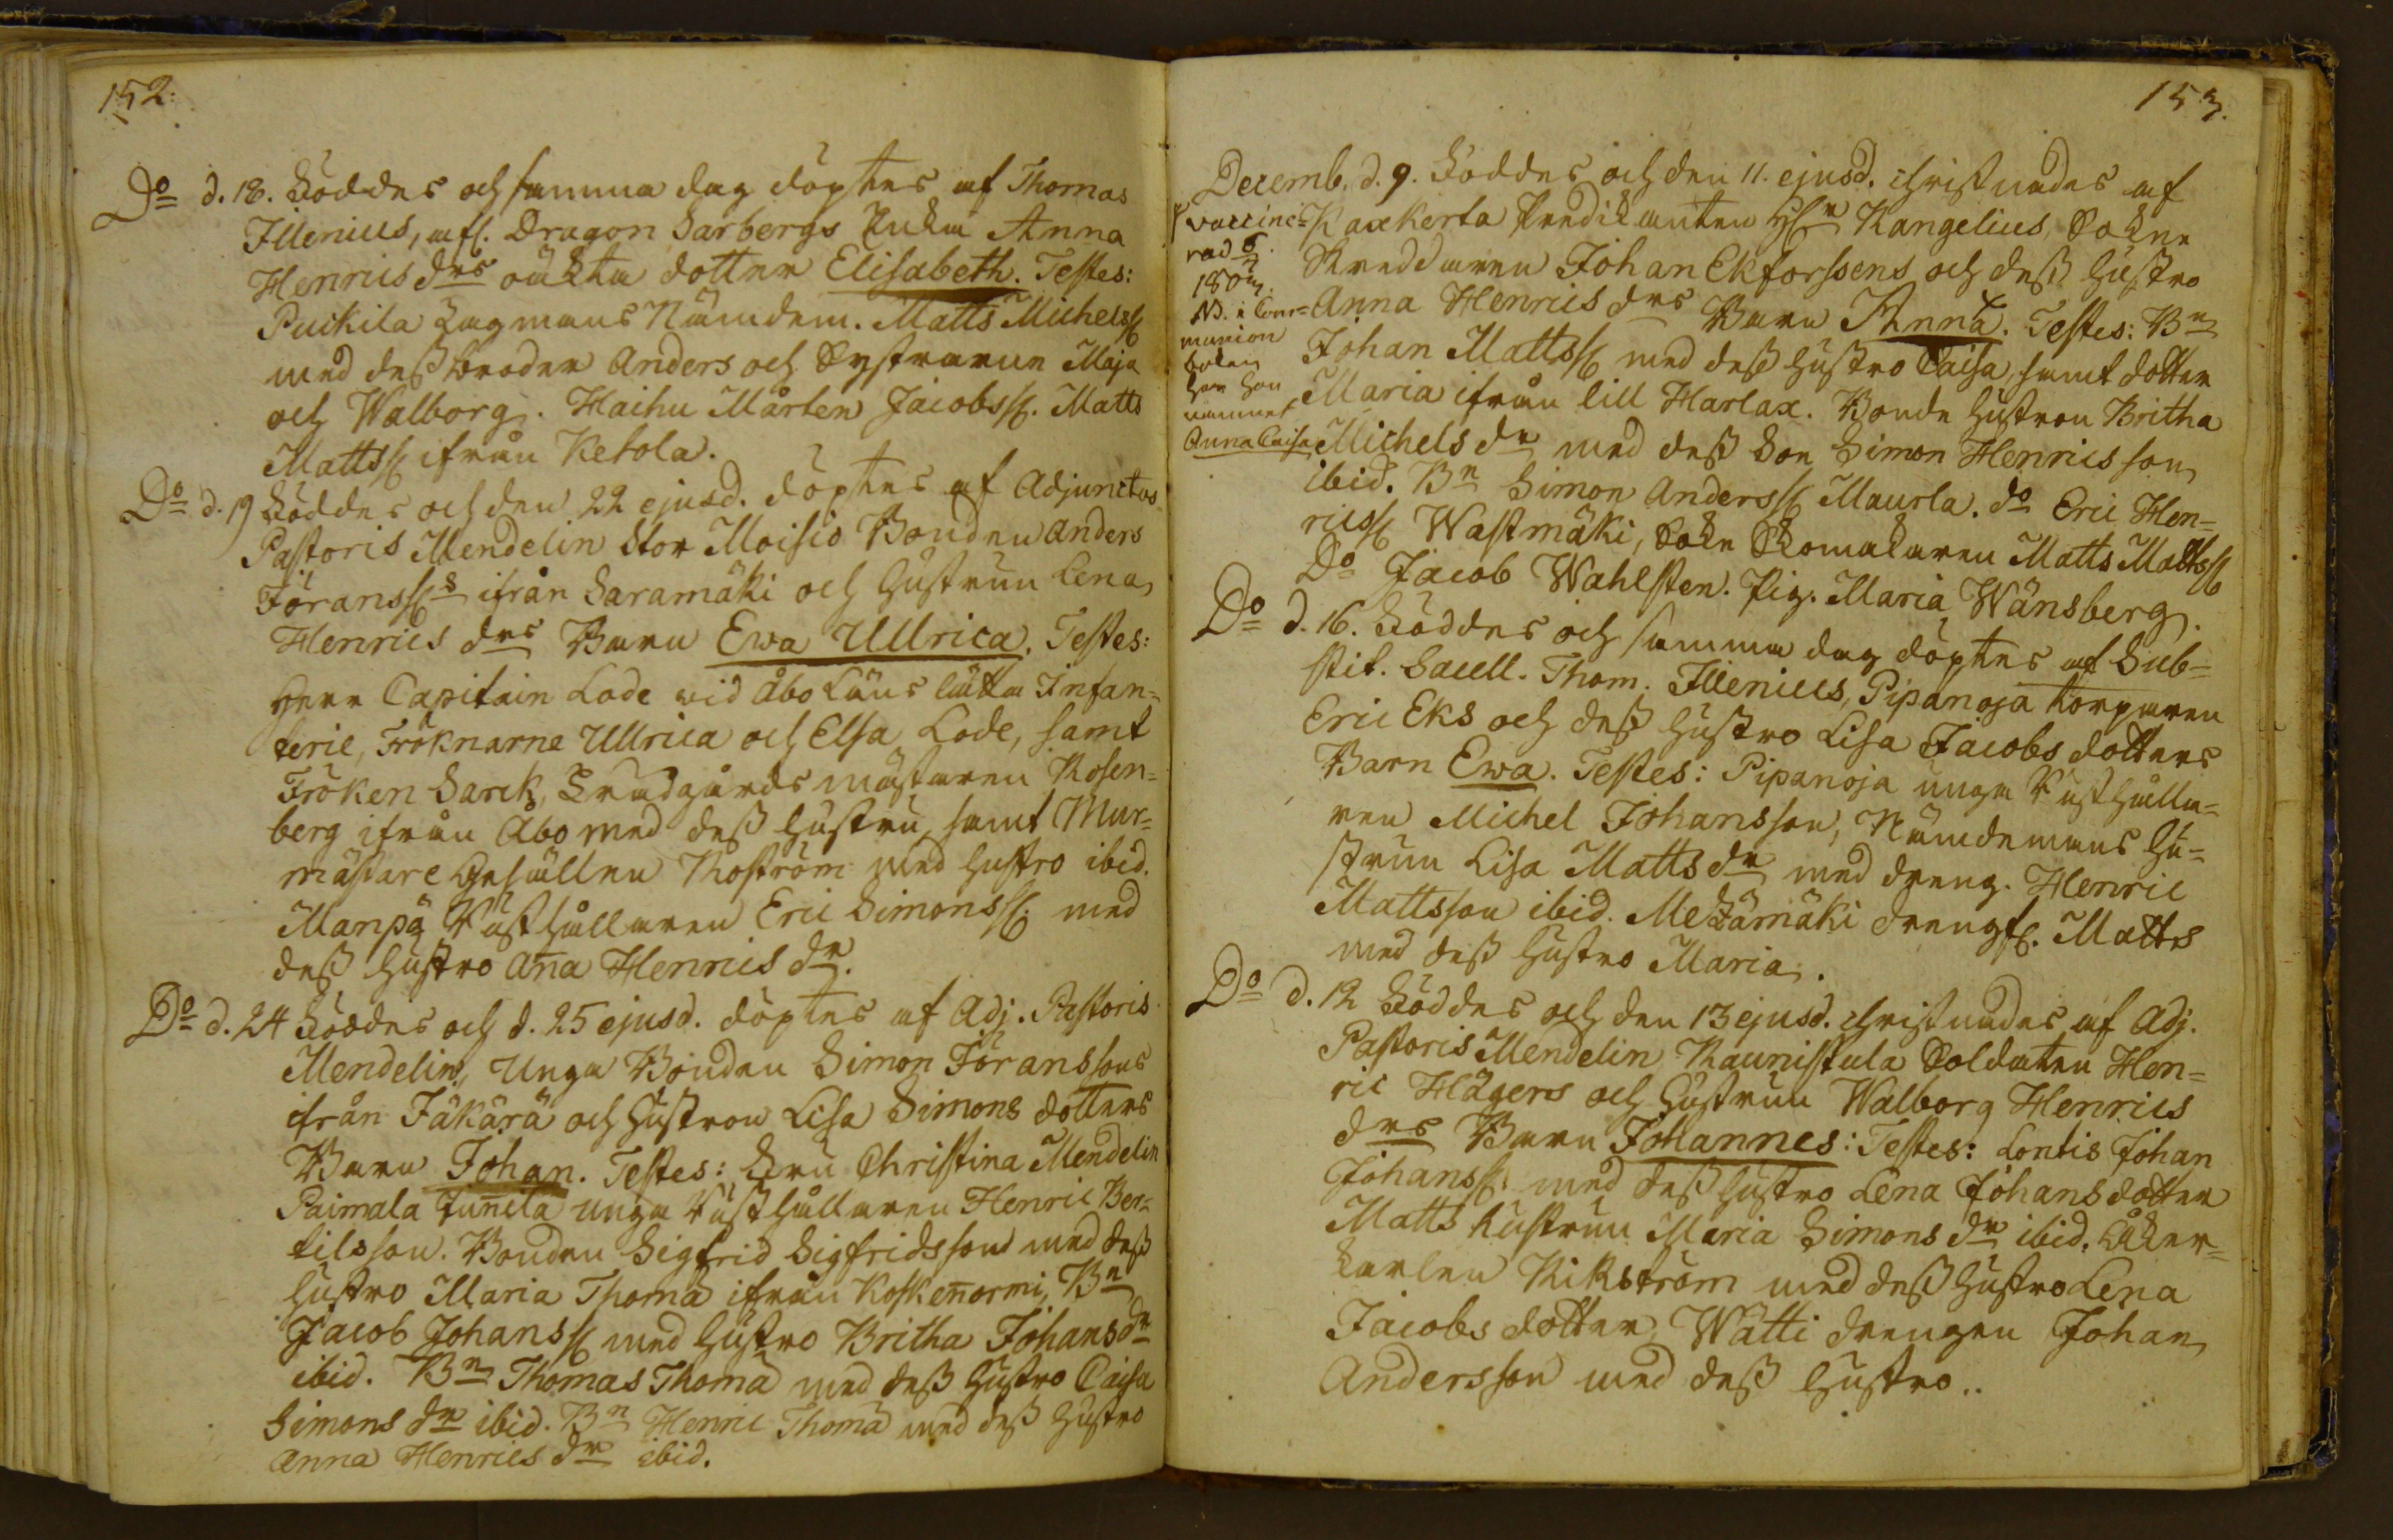 152.
Do d. 18. Föddes och samma dag döptes af Thomas
Illenius, afl. Dragon Sarbergs Enka Anna
Henrics drs oäkta dotter Elisabeth. Testes:
Puckila Lagmans Nämdem. Matts Michelss.
med dess broder Anders och Systrarne Maja
och Walborg. Haihu Mårten Jacobss. Matts
Mattss. ifrån Ketola.
Do d. 19 Föddes och den 22 ejusd. döptes af Adjunctus
Pastoris Mendelin Stor Moisio Bonden Anders
Jöranss.s ifrån Saramäki och Hustrun Lena
Henrics drs Barn Ewa Ullrica. Testes:
Herr Capitain Lode vid Åbo Läns lätta Infan-
terie, Fröknarne Ullrica och Elsa Lode, samt
Fröken Sarck, Trädgårdsmästaren Rosen-
berg ifrån Åbo med dess Hustru, samt Mur-
mästare Gesällen Roström med Hustro ibid.
Manpä Rusthållaren Eric Simonss. med
dess Hustro Ana Henrics dr.
Do d. 24 Föddes och d. 25 ejusd. döptes af Adj. Pastoris
Mendelin, Unga Bonden Simon Jöranssons
ifrån Jäkärä och Hustron Lisa Simons dotters
Barn Johan. Testes: Fru Christina Mendelin
Paimala Junnila unga Rusthållaren Henric Ber-
tilsson. Bonden Sigfrid Sigfridsson med dess
Hustro Maria Thoma ifrån Koskennormi, Bn
Jacob Johanss. med Hustro Britha Johans dr
ibid. Bn Thomas Thoma med dess Hustro Caisa
Simons dr ibid. Bn Henric Thoma med dess Hustro
Anna Henrics dr ibid.
153.
Decemb. d. 9. Föddes och den 11. ejusd. christnades af
Kaxkerta Predikanten Hr Kangelius, Sokne
Skreddaren Johan Ekforssens och dess Hustro
Anna Henrics drs Barn Anna. Testes: Bn
Johan Mattss. med dess Hustro Caisa, samt dotter
Maria ifrån lill Harlax. Bonde Hustron Britha
Michels dr med dess Son Simon Henricsson
ibid. Bn Simon Anderss. Maurla. do Eric Hen-
ricss. Wastmäki, Sokn Skomakaren Matts Mattss.
Do Jacob Wahlsten. Pig. Maria Wänsberg.
vaccine-
rad
N.B. i Com-
munion
boken
har hon
namnet
Anna Caisa
Do d. 16. Föddes och samma dag döptes af Sub-
stit. Sacell. Thom. Illenius, Pipanoja torparen
Eric Eks och dess Hustro Lisa Jacobs dotters
Barn Ewa. Testes: Pipanoja unga Rusthålla-
ren Michel Johansson, Nämdemans Hu-
strun Lisa Matts dr med dreng. Henric
Mattsson ibid. Metzämäki drengs. Matts
med dess Hustro Maria.
Do d. 12 Föddes och den 13 ejusd. christnades af Adj.
Pastoris Mendelin Raunistula Soldaten Hen-
ric Hägers och Hustrun Walborg Henrics
drs Barn Johannes: Testes: Lontis Johan
Johanss. med dess Hustro Lena Johans dotter
Matts Hustrun Maria Simons dr ibid. Åker-
karlen Rikström med dess Hustro Lena
Jacobs dotter, Wätti drengen Johan
Andersson med dess Hustro..